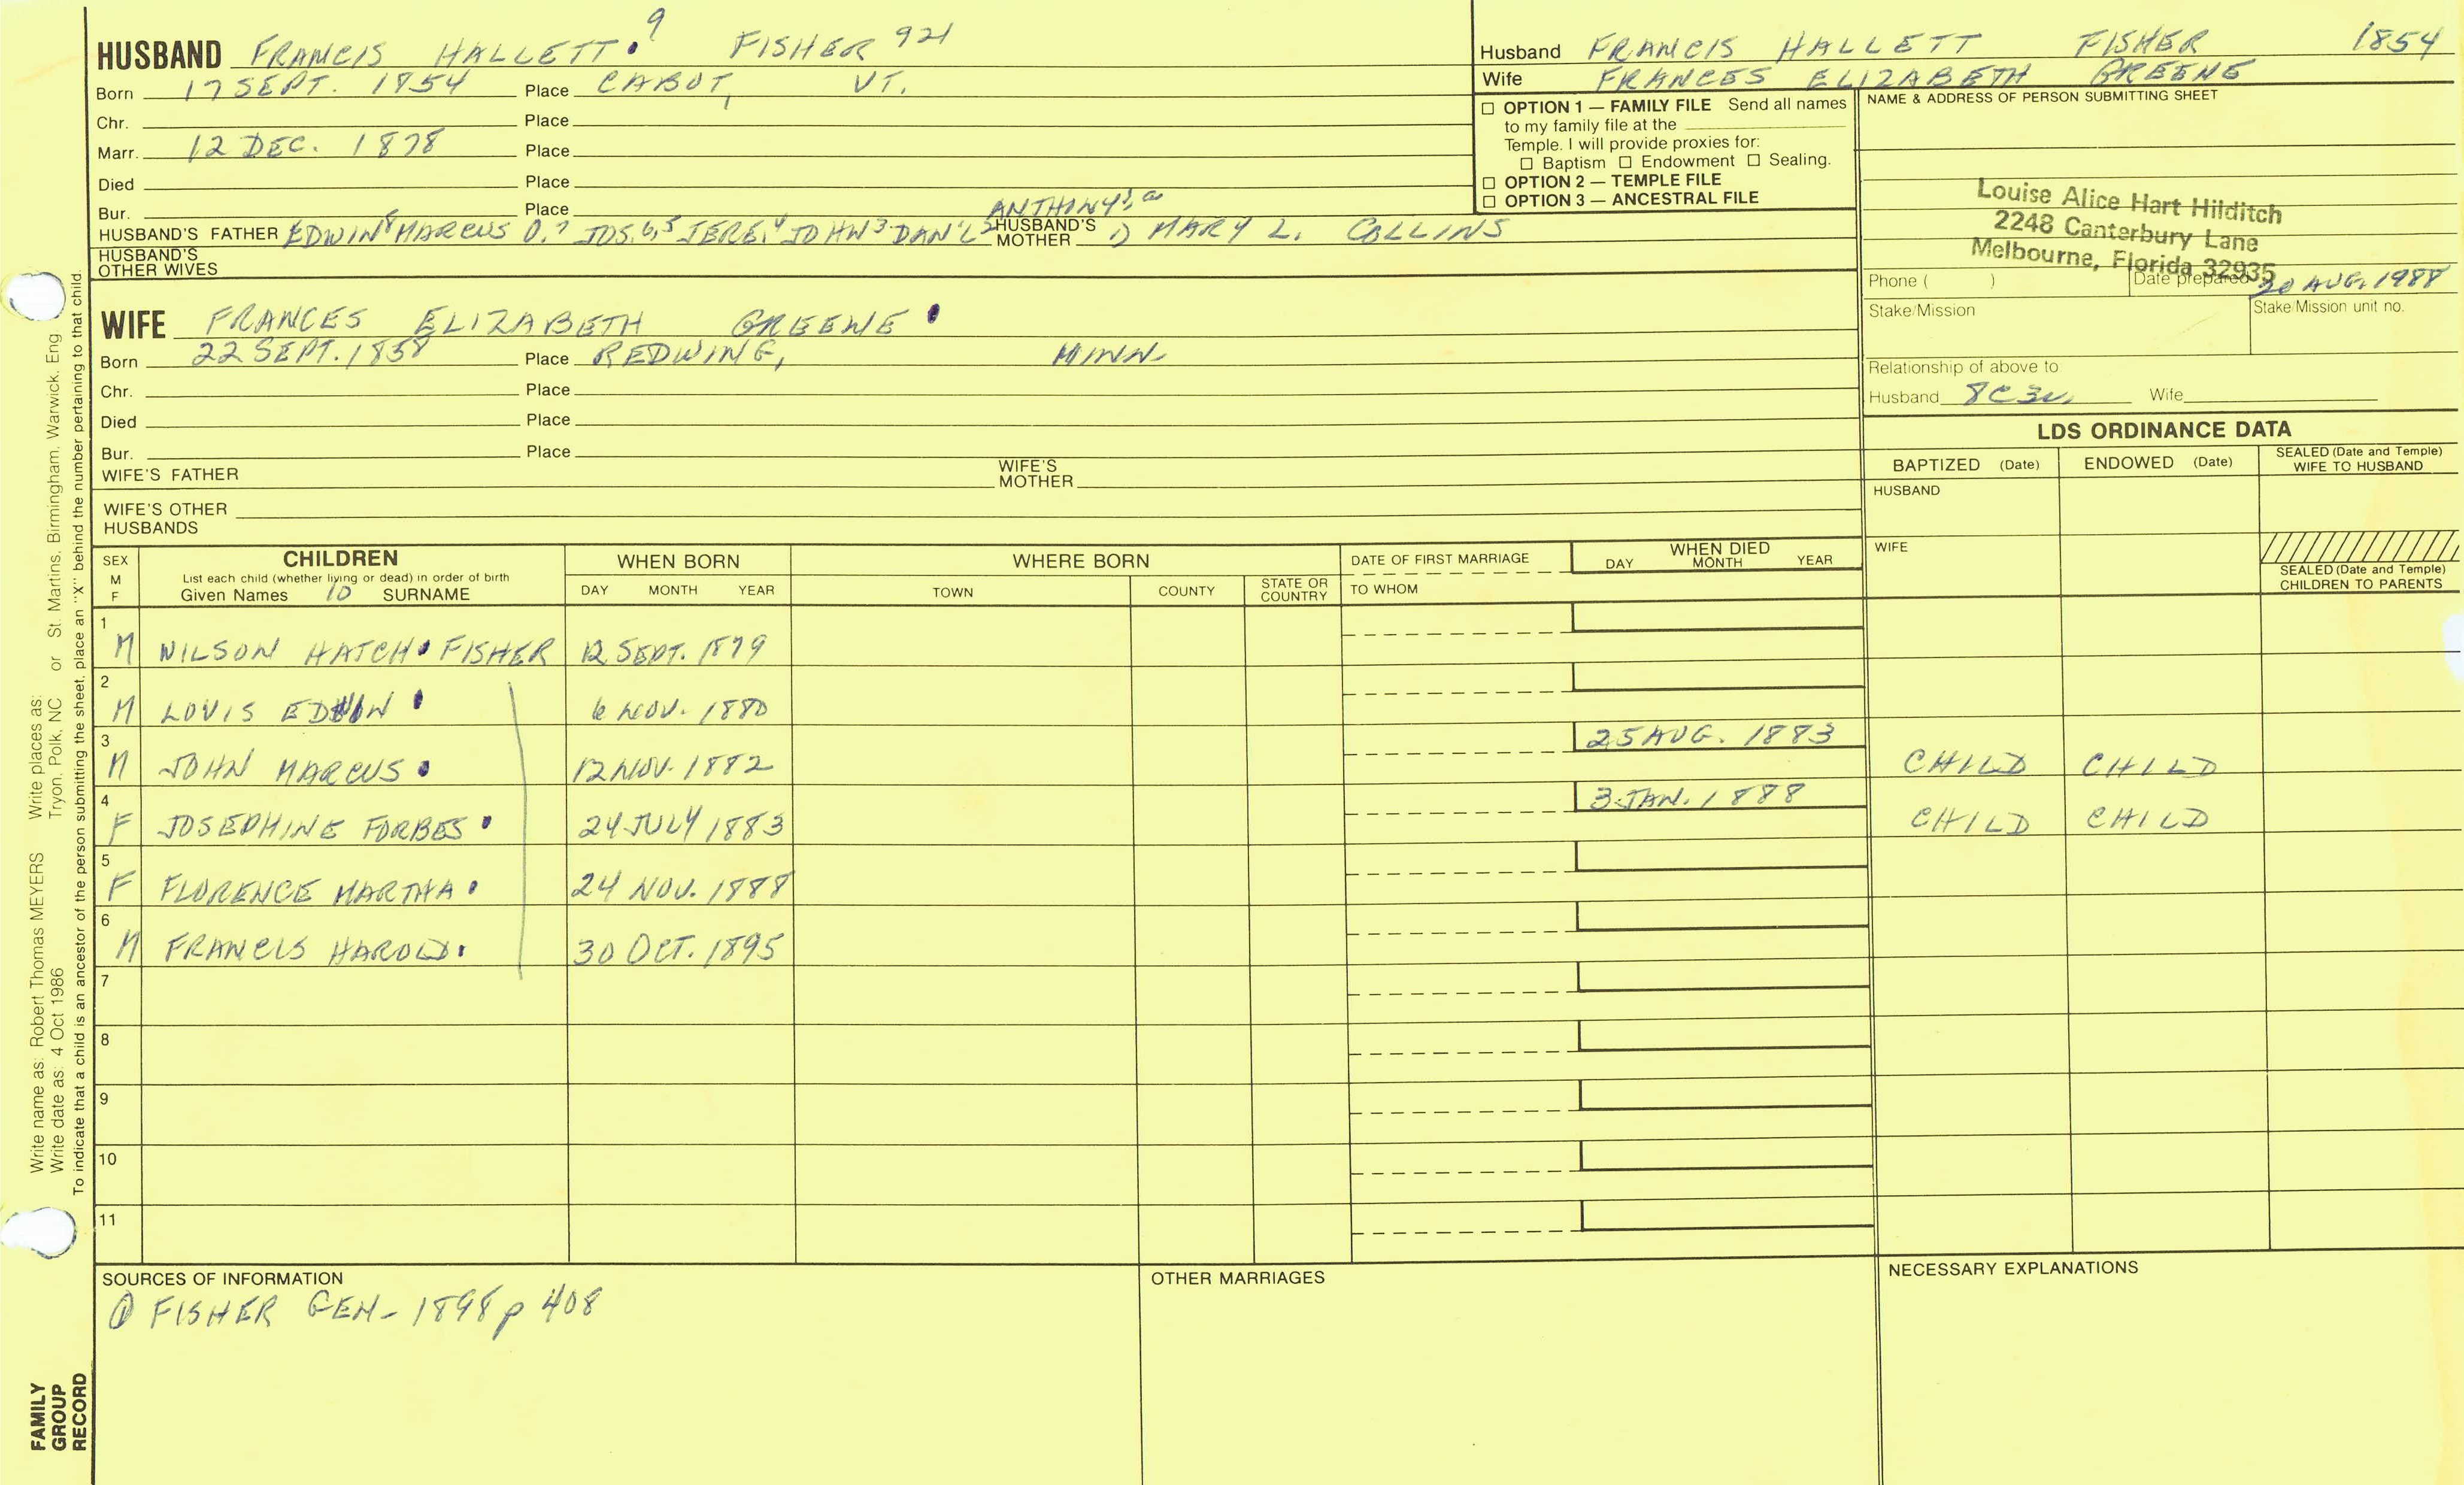 HUSBAND FRANCIS HALLETT 9 FISHER 921
Born 17 SEPT. 1854 Place CABOT, VT.
Chr. Place
Marr. 12 DEC. 1878 Place
Died Place
Bur. Place
HUSBAND'S FATHER EDWIN 8 MARCUS O.7 JOS.6,5 JERE.4 JOHN 3 DAN'L 2 ANTHONY 1 HUSBAND'S MOTHER 1) MARY L. COLLINS
HUSBAND'S OTHER WIVES
WIFE FRANCES ELIZABETH GREENE
Born 22 SEPT. 1858 Place REDWING, MINN.
Chr. Place
Died Place
Bur. Place
WIFE'S FATHER WIFE'S MOTHER
WIFE'S OTHER HUSBANDS
Husband FRANCIS HALLETT FISHER 1854
Wife FRANCES ELIZABETH GREENE
☐ OPTION 1 — FAMILY FILE Send all names
to my family file at the
Temple. I will provide proxies for:
☐ Baptism ☐ Endowment ☐ Sealing.
☐ OPTION 2 — TEMPLE FILE
☐ OPTION 3 — ANCESTRAL FILE
NAME & ADDRESS OF PERSON SUBMITTING SHEET
Louise Alice Hart Hilditch
2248 Canterbury Lane
Melbourne, Florida 32935
Phone ( ) Date prepared 20 AUG. 1988
Stake/Mission Stake/Mission unit no.
Relationship of above to
Husband 8C3R Wife
LDS ORDINANCE DATA
BAPTIZED (Date) ENDOWED (Date) SEALED (Date and Temple) WIFE TO HUSBAND
HUSBAND
WIFE
SEALED (Date and Temple) CHILDREN TO PARENTS
SEX M F CHILDREN List each child (whether living or dead) in order of birth Given Names 10 SURNAME
WHEN BORN DAY MONTH YEAR
WHERE BORN TOWN COUNTY STATE OR COUNTRY
DATE OF FIRST MARRIAGE TO WHOM
WHEN DIED DAY MONTH YEAR
1 M WILSON HATCH FISHER 12 SEPT. 1879
2 M LOUIS EDWIN 6 NOV. 1880
3 M JOHN MARCUS 12 NOV. 1882 25 AUG. 1883 CHILD CHILD
4 F JOSEPHINE FORBES 24 JULY 1883 3 JAN. 1888 CHILD CHILD
5 F FLORENCE MARTHA 24 NOV. 1888
6 M FRANCIS HAROLD 30 OCT. 1895
7
8
9
10
11
SOURCES OF INFORMATION
① FISHER GEN- 1898 p 408
OTHER MARRIAGES
NECESSARY EXPLANATIONS
Write name as: Robert Thomas MEYERS Write places as:
Write date as: 4 Oct 1986 Tryon, Polk, NC or St. Martins, Birmingham, Warwick, Eng
To indicate that a child is an ancestor of the person submitting the sheet, place an "X" behind the number pertaining to that child.
FAMILY
GROUP
RECORD